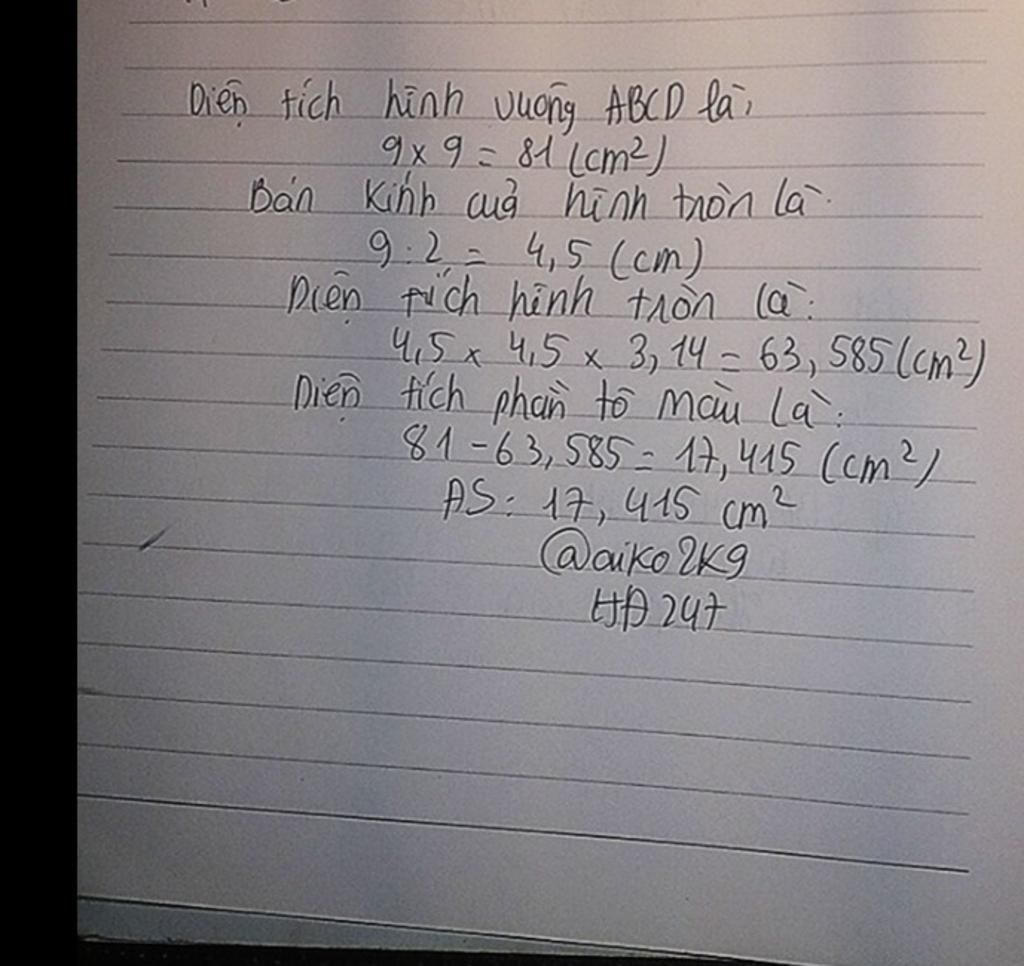 Diện tích hình vuông ABCD là:
9 x 9 = 81 (cm²)
Bán kính của hình tròn là:
9 : 2 = 4,5 (cm)
Diện tích hình tròn là:
4,5 x 4,5 x 3,14 = 63,585 (cm²)
Diện tích phần tô màu là:
81 - 63,585 = 17,415 (cm²)
ĐS: 17,415 cm²
@aiko2k9
HĐ 247